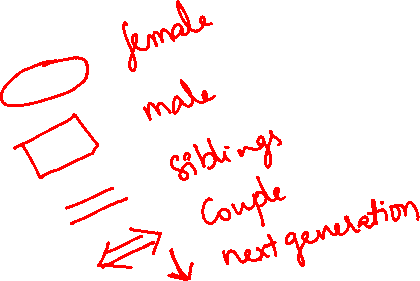 female
male
siblings
Couple
next generation